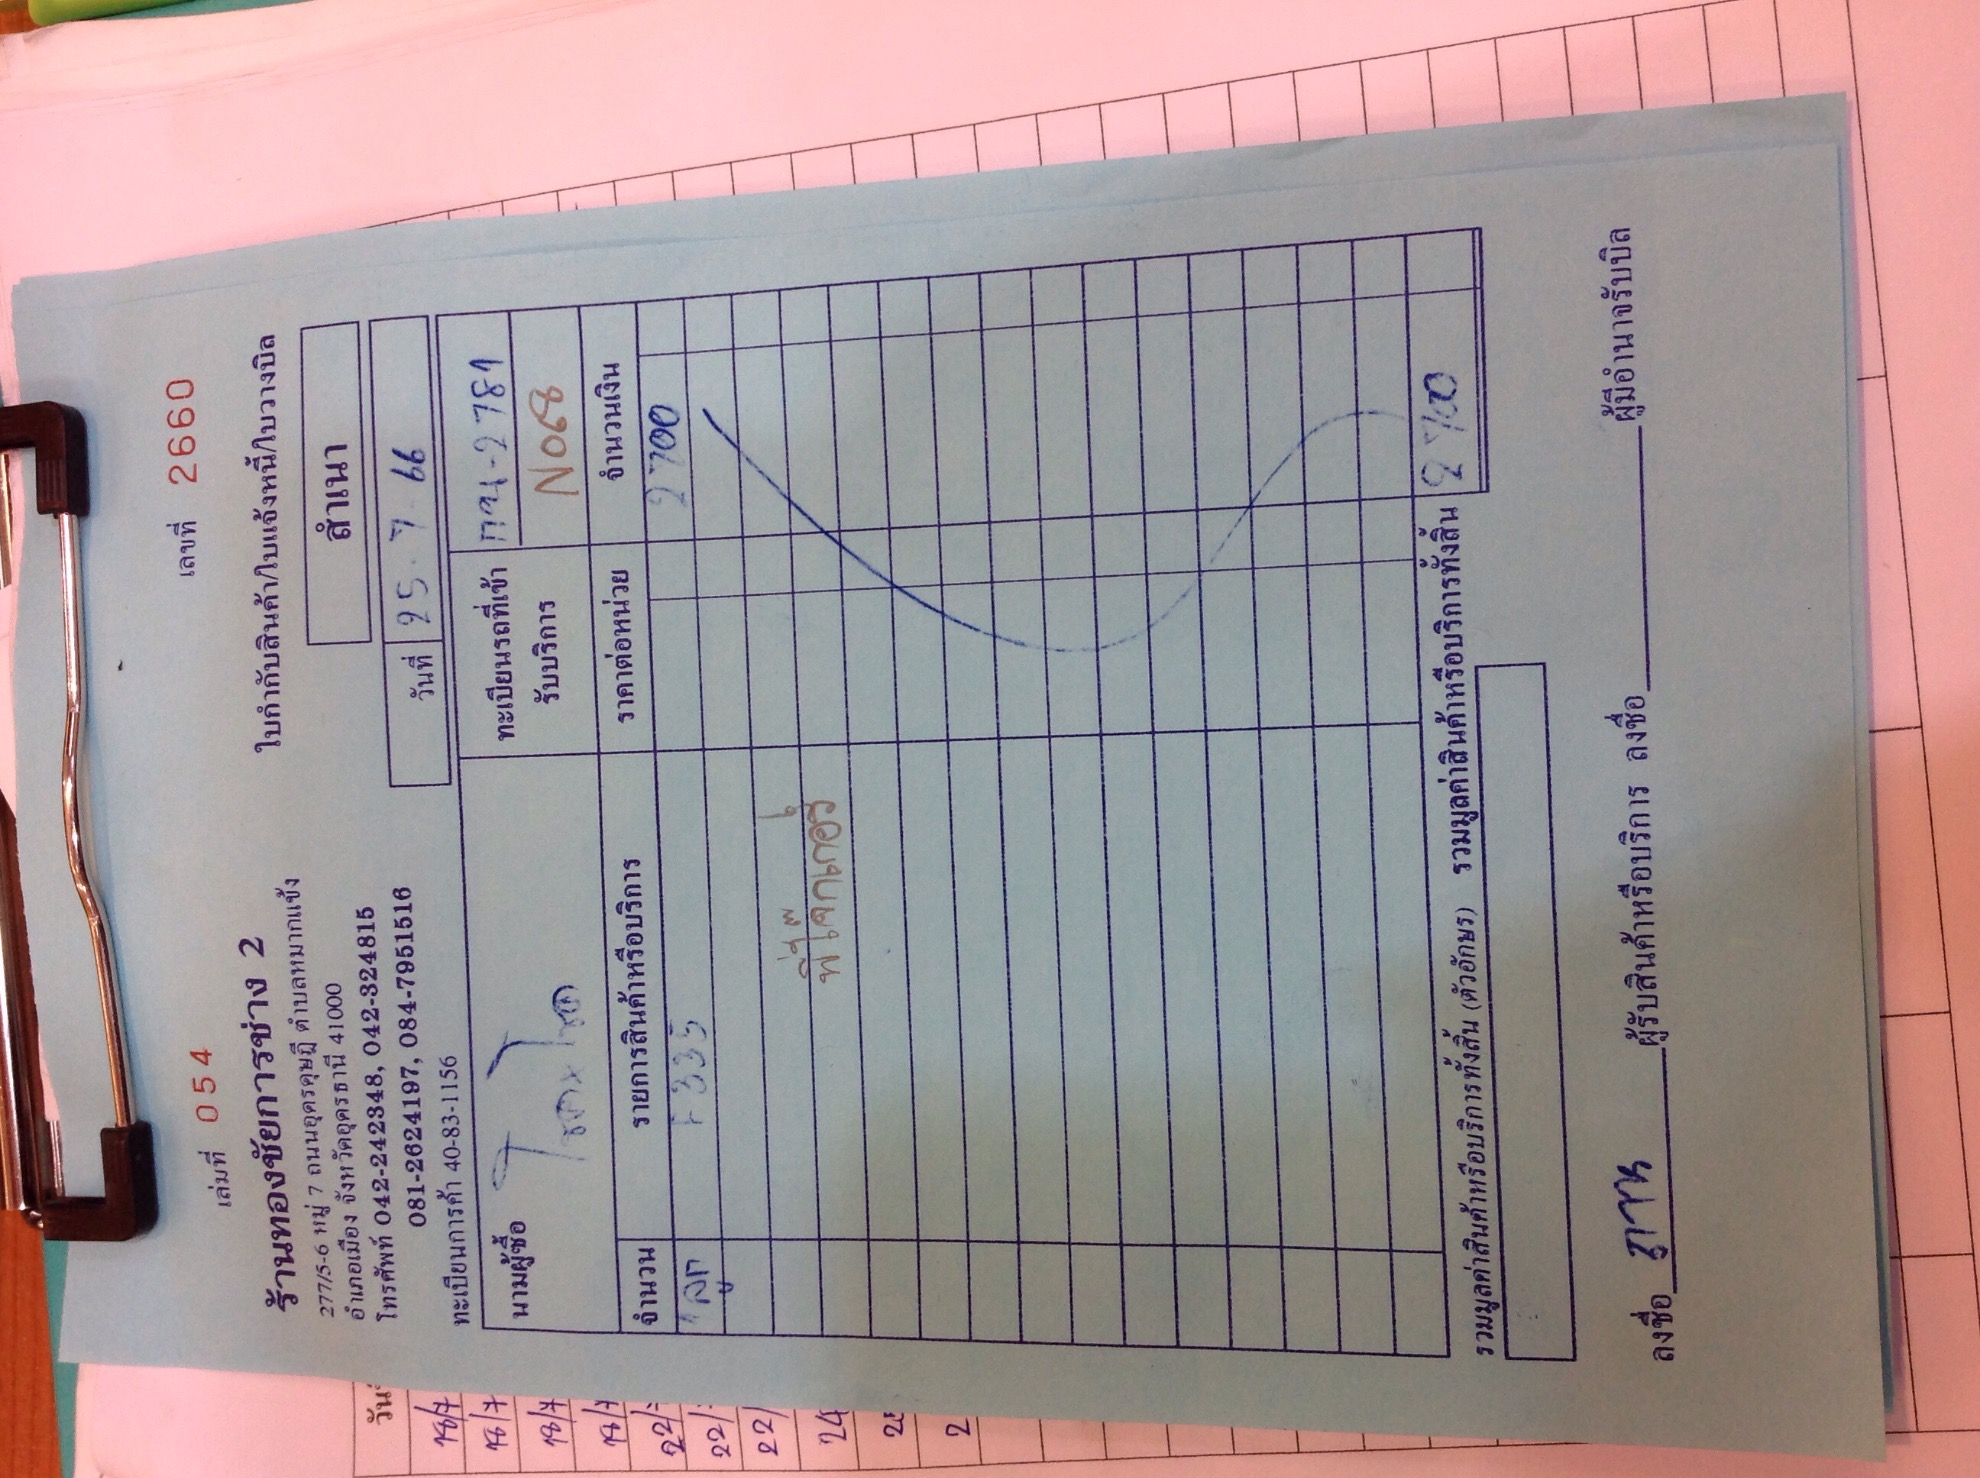 เล่มที่ 054 เลขที่ 2660
ร้านทองชัยการช่าง 2
ใบกำกับสินค้า/ใบแจ้งหนี้/ใบวางบิล
277/5-6 หมู่ 7 ถนนอุดรดุษฎี ตำบลหมากแข้ง
อำเภอเมือง จังหวัดอุดรธานี 41000
สำเนา
โทรศัพท์ 042-242348, 042-324815
081-2624197, 084-7951516
วันที่ 25.7.66
ทะเบียนการค้า 40-83-1156
นามผู้ซื้อ
ทะเบียนรถที่เข้า
รับบริการ
2781
N068
จำนวน รายการสินค้าหรือบริการ ราคาต่อหน่วย จำนวนเงิน
1 ลูก F335 2700
รวมมูลค่าสินค้าหรือบริการทั้งสิ้น (ตัวอักษร) รวมมูลค่าสินค้าหรือบริการทั้งสิ้น 2700
ลงชื่อ ผู้รับสินค้าหรือบริการ ลงชื่อ ผู้มีอำนาจรับบิล
18/7
18/7
18/7
18/7
22/
22/
22/
24